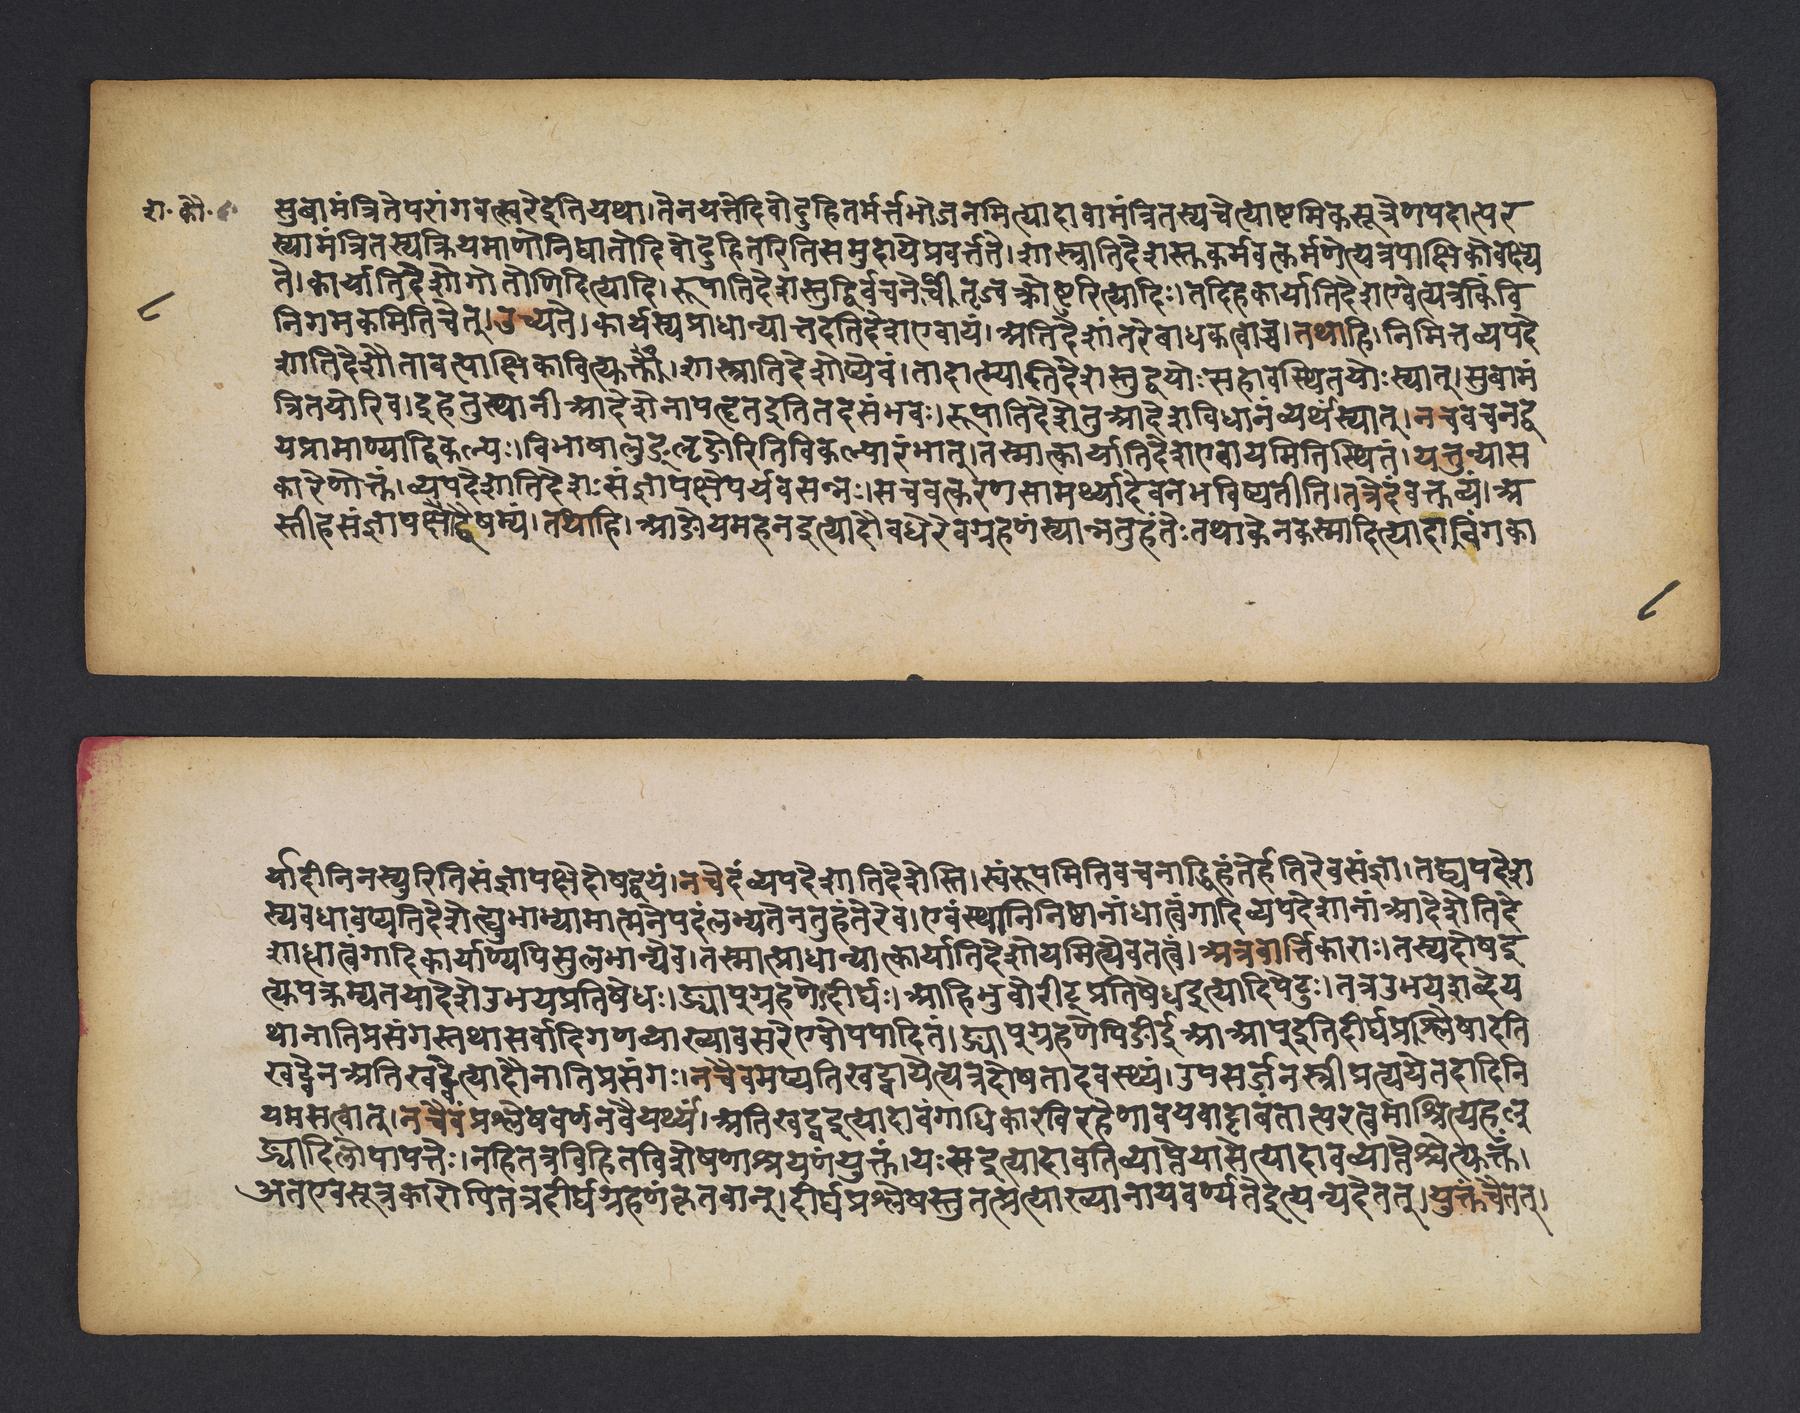 श. कौ.
सुबामंत्रितेपरांगवत्स्वरेइतियथा।तेनयत्तेदिवोदुहितर्मर्त्तभोजनमित्यादावामंत्रितस्यचेत्याष्टमिकसूत्रेणपदात्पर
स्यामंत्रितस्यक्रियमाणोनिघातोदिवोदुहितरितिसमुदायेप्रवर्त्तते।शास्त्रातिदेशस्तुकर्मवत्कर्मणेत्यत्रपाक्षिकोवक्ष्य
ते।कार्यातिदेशोगोतोणिदित्यादि।रूपातिदेशस्तुद्विर्वचनेचीतृज्वत्क्रोष्टुरित्यादिः।तदिहकार्यातिदेशएवेत्यत्रकिंवि
निगमकमितिचेत्।उच्यते।कार्यस्यप्राधान्यात्तदतिदेशएवायं।अतिदेशांतरेबाधकत्वाच्च।तथाहि।निमित्तव्यपदे
शातिदेशौतावत्पाक्षिकावित्युक्तौ।शास्त्रातिदेशोप्येवं।तादात्म्यातिदेशस्तुद्वयोःसहावस्थितयोःस्यात्।सुबामं
त्रितयोरिव।इहतुस्थानीआदेशेनापहृतइतितदसंभवः।रूपातिदेशेतुआदेशविधानंव्यर्थंस्यात्।नचवचनद्व
यप्रामाण्याद्विकल्पः।विभाषालुङ्लृङोरितिविकल्पारंभात्।तस्मात्कार्यातिदेशएवायमितिस्थितं।यत्तुन्यास
कारेणोक्तं।व्यपदेशातिदेशःसंज्ञापक्षेपर्यवसन्नः।सचवत्करणसामर्थ्यादेवनभविष्यतीति।तत्रेदंवक्तव्यं।अ
स्तीहसंज्ञापक्षाद्वैषम्यं।तथाहि।आङोयमहनइत्यादौवधेरेवग्रहणंस्यान्नतुहंतेःतथाकेनकस्मादित्यादावंगका
८
८
र्यादीनिनस्युरितिसंज्ञापक्षेदोषद्वयं।नचेदंव्यपदेशातिदेशेस्ति।स्वंरूपमितिवचनाद्धिहंतेर्हंतिरेवसंज्ञा।तद्व्यपदेश
स्यवधावप्यतिदेशेत्युभाभ्यामात्मनेपदंलभ्यतेनतुहंतेरेव।एवंस्थानिनिष्ठानांधात्वंगादिव्यपदेशानांआदेशेतिदे
शाद्धात्वंगादिकार्याण्यपिसुलभान्येव।तस्मात्प्राधान्यात्कार्यातिदेशोयमित्येवतत्वं।अत्रवार्त्तिकाराः।तस्यदोषइ
त्युपक्रम्यतयादेशेउभयप्रतिषेधः।ङ्यापुग्रहणेदीर्घः।आहिभुवोरीट्प्रतिषेधइत्यादिपेठुः।तत्रउभयशब्देय
थानातिप्रसंगस्तथासर्वादिगणव्याख्यावसरेएवोपपादितं।ङ्यापुग्रहणेपिङीईआआपूइतिदीर्घप्रश्लिषादति
खट्वेनअतिखट्वेत्यादौनातिप्रसंगः।नचैवमप्यतिखट्वायेत्यत्रदोषतादवस्थ्यं।उपसर्जनस्त्रीप्रत्ययेतदादिनि
यमसत्वात्।नचैवंप्रश्लेषवर्णनवैयर्थ्यं।अतिखट्वइत्यादावंगाधिकारविरहेणावयवाद्दाबंतात्परत्वमाश्रित्यहल्
ङ्यादिलोपापत्तेः।नहितत्रविहितविशेषणाश्रयणंयुक्तं।यःसइत्यादावतिव्याप्तेर्यासेत्यादावव्याप्तेश्चेत्युक्तं।
अतएवसूत्रकारोपितत्रदीर्घग्रहणंकृतवान्।दीर्घप्रश्लेषस्तुतत्प्रत्याख्यानायवर्ण्यतेइत्यन्यदेतत्।युक्तंचैतत्।